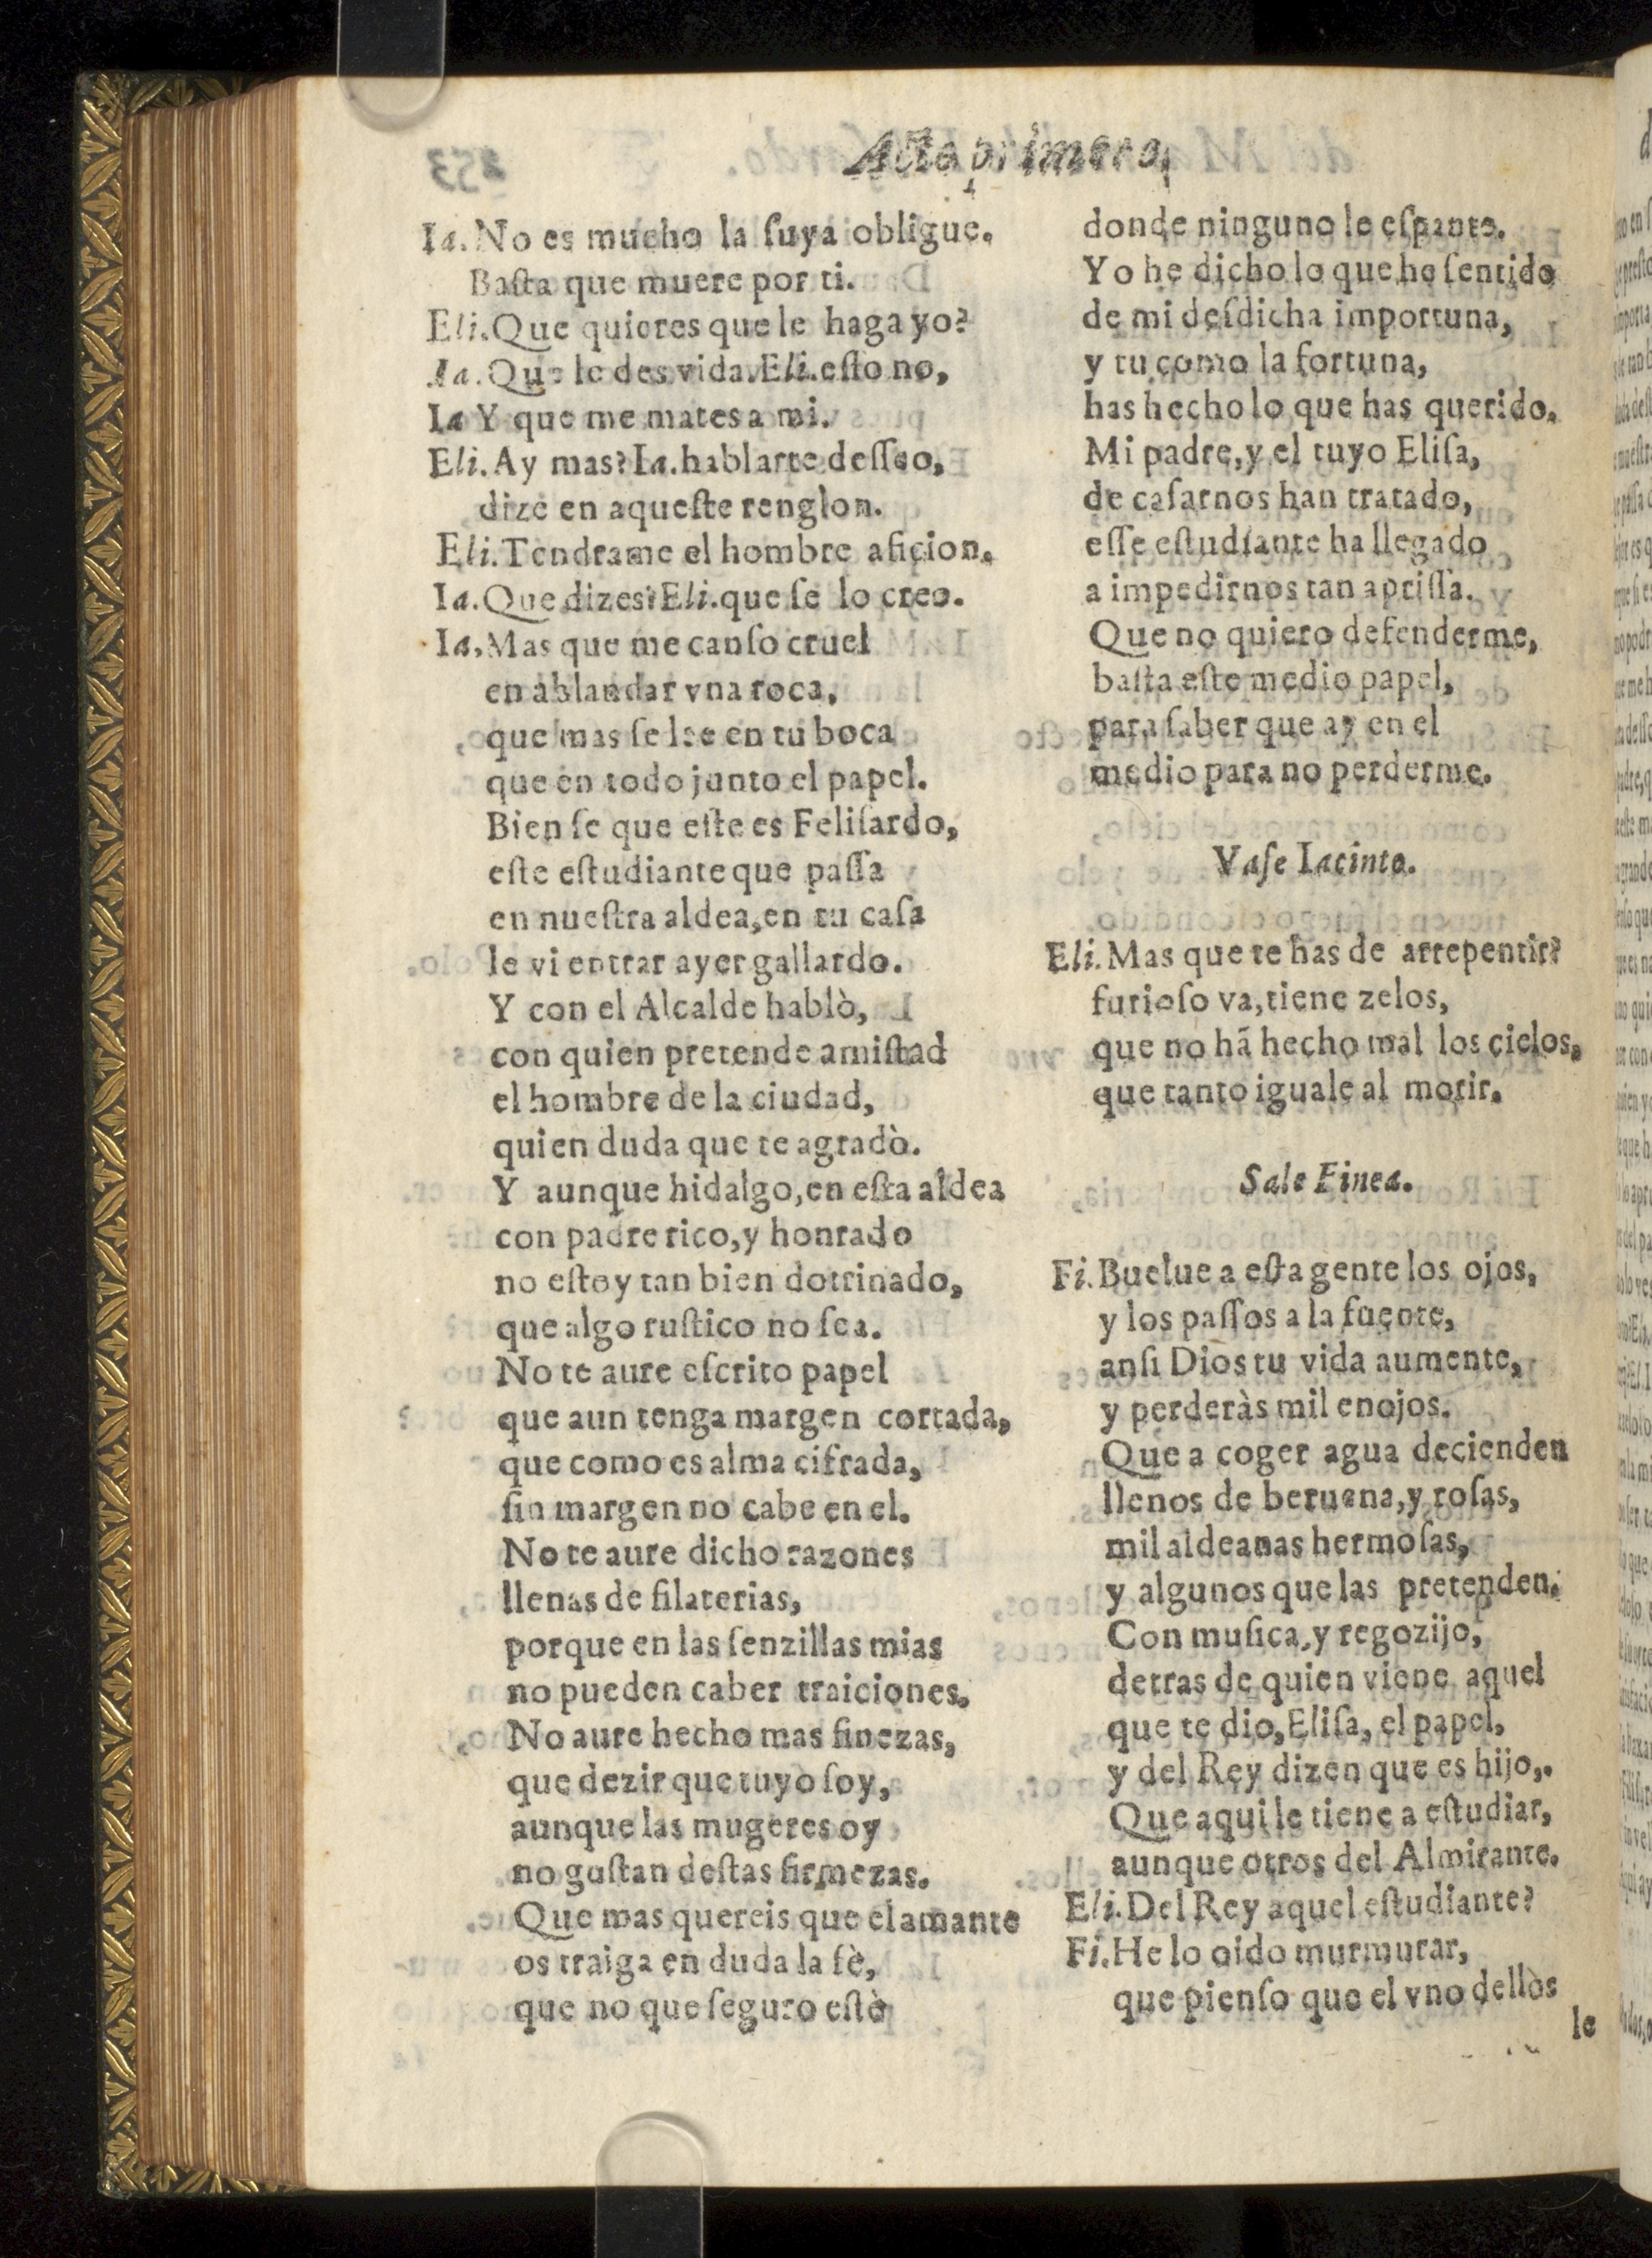 Acto primero,
Ia. No es mucho la ſuya obligue.
Baſta que muere por ti.
Eli. Que quieres que le haga yo?
Ia. Que le des vida. Eli. eſto no,
Ia Y que me mates a mi.
Eli. Ay mas? Ia. hablarte deſſeo,
dize en aqueſte renglon.
Eli. Tendrame el hombre aficion.
Ia. Que dizes? Eli. que ſe lo creo.
Ia. Mas que me canſo cruel
en ablandar vna roca,
que mas ſe lee en tu boca
que en todo junto el papel.
Bien ſe que eſte es Feliſardo,
eſte eſtudiante que paſſa
en nueſtra aldea, en tu caſa
le vi entrar ayer gallardo.
Y con el Alcalde hablò,
con quien pretende amiſtad
el hombre de la ciudad,
quien duda que te agradò.
Y aunque hidalgo, en eſta aldea
con padre rico, y honrado
no eſtoy tan bien dotrinado,
que algo ruſtico no ſea.
No te aure eſcrito papel
que aun tenga margen cortada,
que como es alma cifrada,
ſin margen no cabe en el.
No te aure dicho razones
llenas de filaterias,
porque en las ſenzillas mias
no pueden caber traiciones.
No aure hecho mas finezas,
que dezir que tuyo ſoy,
aunque las mugeres oy
no guſtan deſtas firmezas.
Que mas quereis que el amante
os traiga en duda la fè,
que no que ſeguro eſtè
donde ninguno le eſpante.
Yo he dicho lo que he ſentido
de mi deſdicha importuna,
y tu como la fortuna,
has hecho lo que has querido.
Mi padre, y el tuyo Eliſa,
de caſarnos han tratado,
eſſe eſtudiante ha llegado
a impedirnos tan apriſſa.
Que no quiero defenderme,
baſta eſte medio papel,
para ſaber que ay en el
medio para no perderme.
Vaſe Iacinto.
Eli. Mas que te has de arrepentir?
furioſo va, tiene zelos,
que no hã hecho mal los cielos,
que tanto iguale al morir.
Sale Finea.
Fi. Buelue a eſta gente los ojos,
y los paſſos a la fuente,
anſi Dios tu vida aumente,
y perderàs mil enojos.
Que a coger agua decienden
llenos de beruena, y roſas,
mil aldeanas hermoſas,
y algunos que las pretenden.
Con muſica, y regozijo,
detras de quien viene aquel
que te dio, Eliſa, el papel,
y del Rey dizen que es hijo,.
Que aqui le tiene a eſtudiar,
aunque otros del Almirante.
Eli. Del Rey aquel eſtudiante?
Fi. He lo oido murmurar,
que pienſo que el vno dellos
le